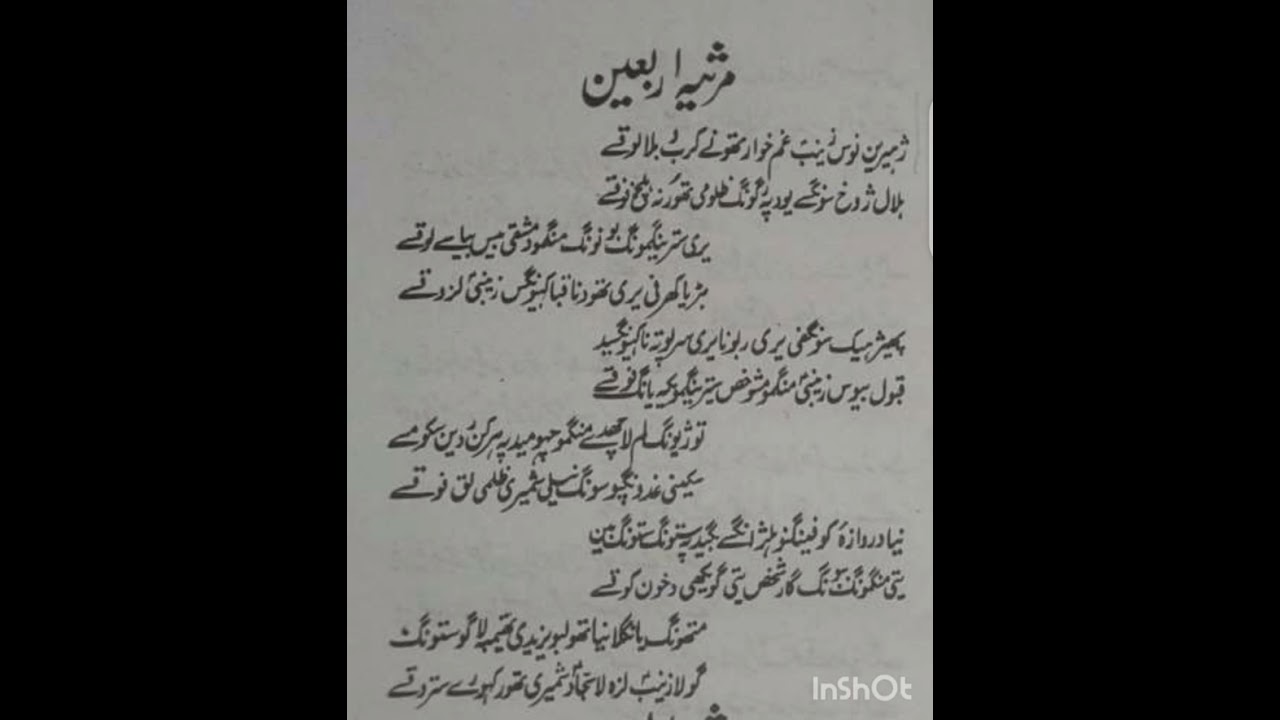 مرثیہ اربعین
ژھیرین نوس زینبؑ غم خوار تھونے کرب بلا لوقسے
ہلال ژوخ سونگسے یود پہ رگونگ ظلومی تھورنہ بلخ فوقسے
یری سترینگمونگ بو نونگ منگمو دمشقی میس بیاسے لوقسے
بڑیا کھرفی یری تھود نا قبا کہیونگس زینبیؑ لزوقسے
پھیژھیک سونگفی یری ربونا یری سرلوپہ نا کہیونگید
قبول بیوس زینبیؑ منگمو مشوخص سترینگمویکہ یانگ فوقسے
توژیونگ لم لا چھدسے منگمو چپو میدپہ ہرکن دین سکومسے
سکینی غدونگپو سونگ نیلی شمیری ظلمی لق فوقسے
نیا دروازہ کو فینگنو ہلژانگسے بگیدپہ ستونگ ستونگ مین
یتی منگمونگ سونگ گار شخص یتی گو یکھی دخون کوقسے
متھونگ یانگلا نیا تھولبو یزیدی تھیمپہ لا گو ستونگ
گولا زینبؑ لزہ لا سجادؑ شمیری تھور کہورے ستروقسے
InShOt